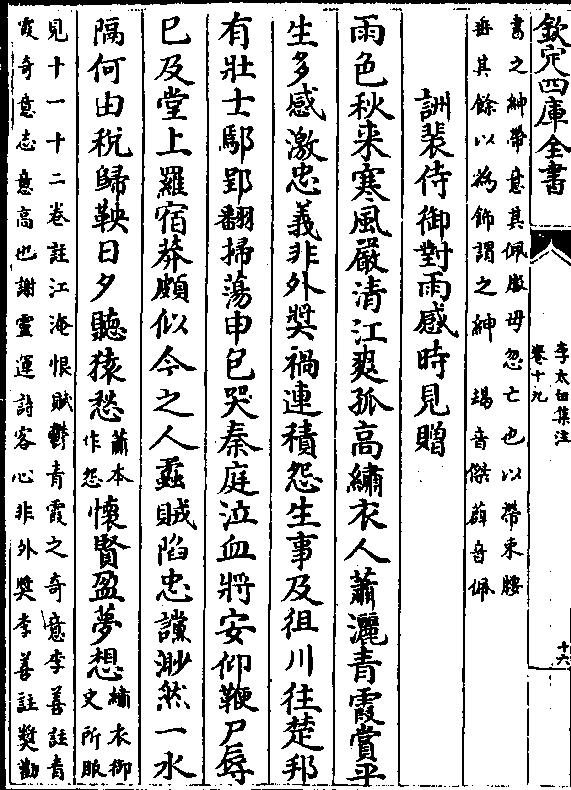 欽定四庫全書
李太白集注
卷十九
十六
書之紳帶意其佩服毋忽亡也以帶束腰
垂其餘以為飾謂之紳　朅音傑藟音佩
詶裴侍御對雨感時見贈
雨色秋来寒風嚴清江爽孤高繡衣人蕭灑青霞賞平
生多感激忠義非外奬禍連積怨生事及徂川往楚邦
有壯士鄢郢翻掃蕩申包哭秦庭泣血將安仰鞭尸辱
已及堂上羅宿莽頗似今之人蟊賊陷忠讜渺然一水
隔何由税歸鞅日夕聽猿愁蕭本作怨懷賢盈夢想繡衣御史所服
見十一十二卷註江淹恨賦鬱青霞之奇意李善註青
霞奇意志意高也謝靈運詩客心非外奬李善註奬勸